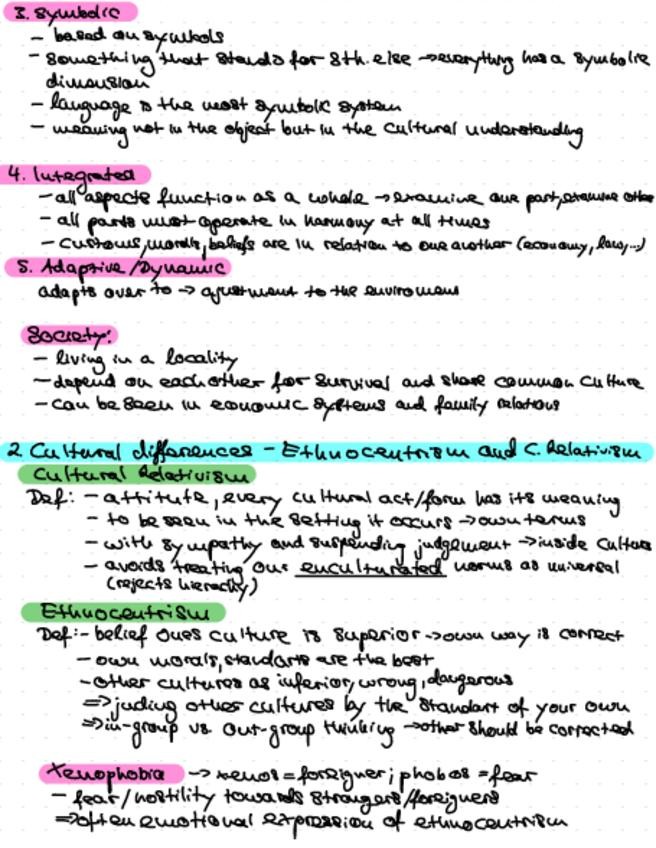 3. Symbolic
- based on symbols
- something that stands for sth. else → everything has a symbolic
dimension
- language is the most symbolic system
- meaning not in the object but in the cultural understanding
4. Integrated
- all aspects function as a whole → examine one part, examine other
- all parts must operate in harmony at all times
- customs, morals, beliefs are in relation to one another (economy, law,...)
5. Adaptive/Dynamic
adapts over to → ajustment to the enviroment
Society:
- living in a locality
- depend on each other for survival and share common culture
- can be seen in economic systems and family relations
2. Cultural differences - Ethnocentrism and C. Relativism
Cultural Relativism
Def: - attitute, every cultural act/form has its meaning
- to be seen in the setting it occurs → own terms
- with sympathy and suspending judgement → inside culture
- avoids treating our enculturated norms as universal
(rejects hierachy)
Ethnocentrism
Def: - belief ones culture is superior → own way is correct
- own morals, standarts are the best
- other cultures as inferior, wrong, dangerous
⇒ juding other cultures by the standart of your own
⇒ in-group vs. out-group thinking → other should be corrected
Xenophobia → xenos = foreigner; phobos = fear
- fear/hostility towards strangers/foreigners
⇒ often emotional expression of ethnocentrism